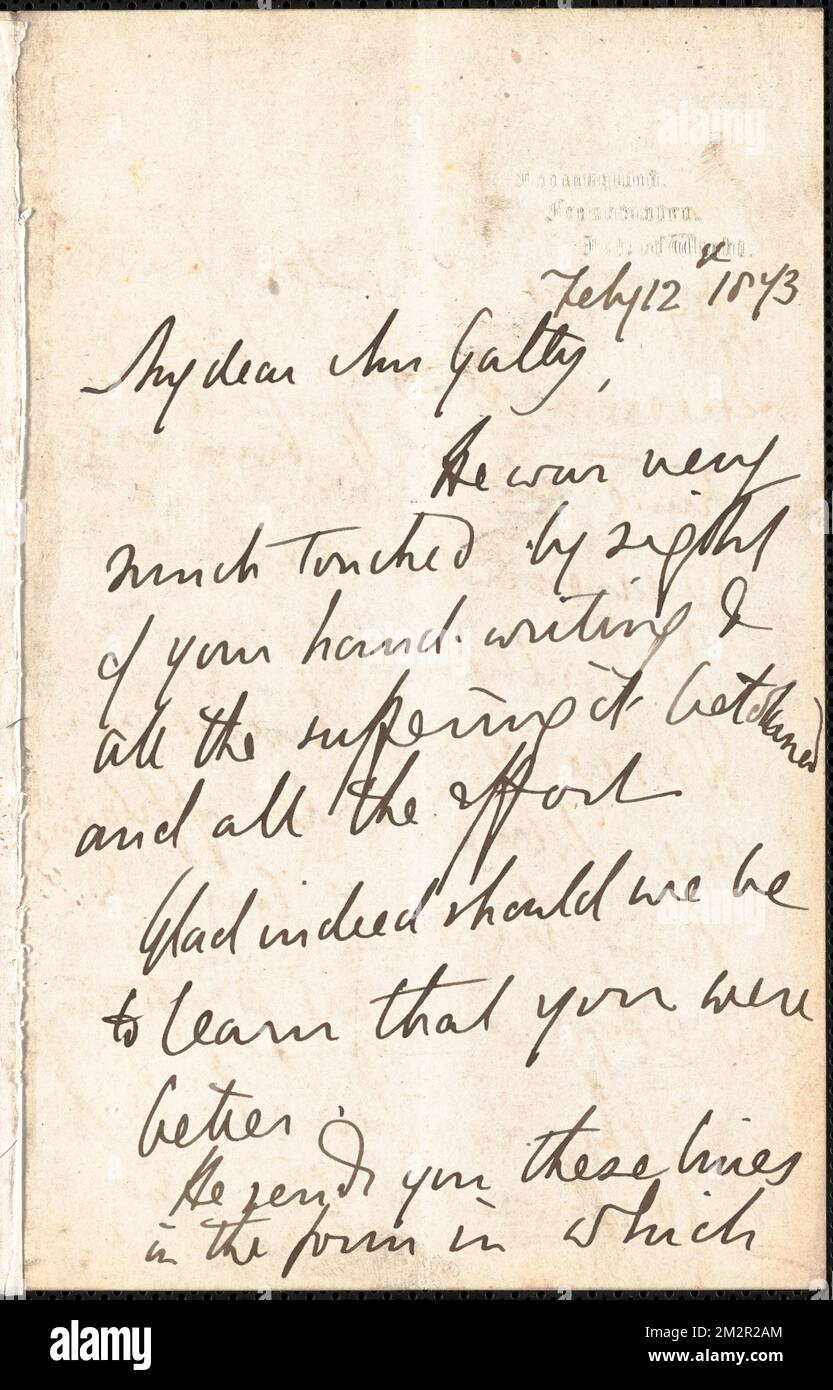 Farringford.
Freshwater.
Isle of Wight.
Feby 12th 1873
My dear Mrs Gatty,
He was very
much touched by sight
of your hand-writing &
all the suffering it betokened
and all the effort
Glad indeed should we be
to learn that you were
better.
He sends you these lines
in the form in which
alamy
alamy
Image ID: 2M2R2AM
www.alamy.com